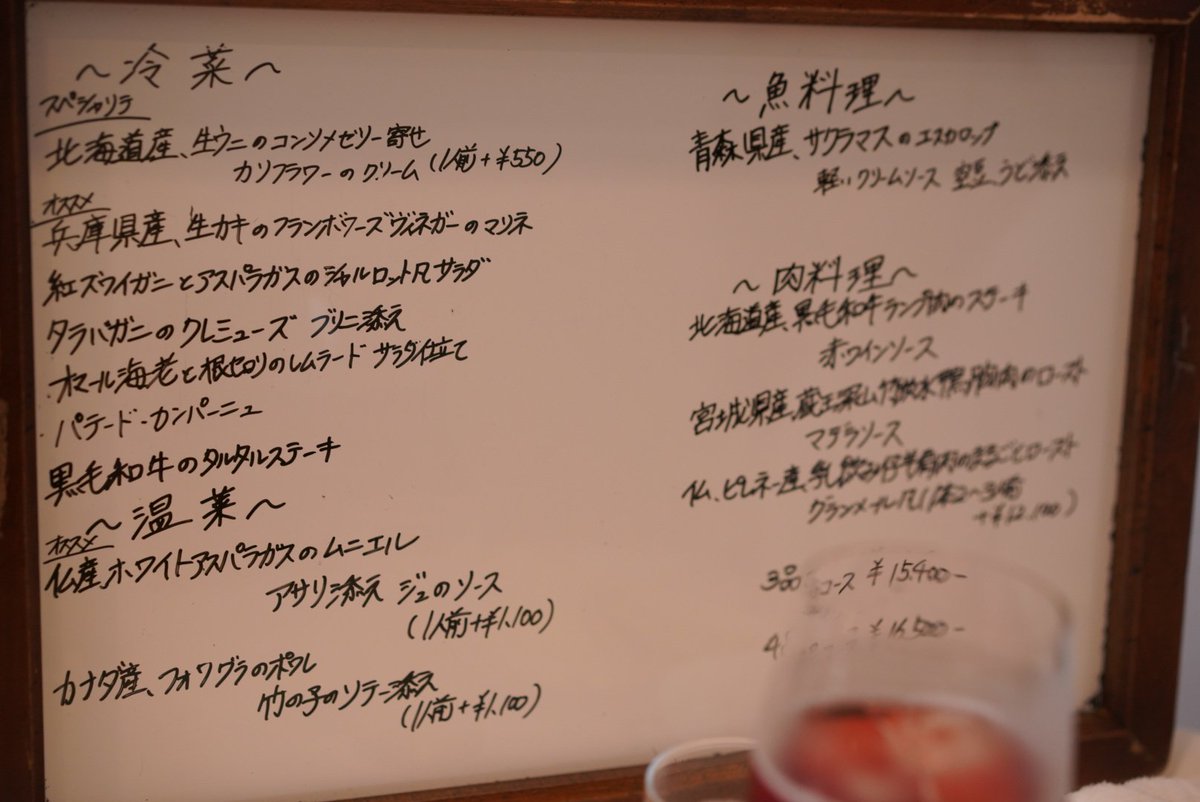 ～冷菜～
スペシャリテ
北海道産、生ウニのコンソメゼリー寄せ
カリフラワーのクリーム (1人前+¥550)
オススメ
兵庫県産、生カキのフランボワーズヴィネガーのマリネ
紅ズワイガニとアスパラガスのシャルロット風サラダ
タラバガニのクレミューズ ブリニ添え
・オマール海老と根セロリのレムラード サラダ仕立て
・パテ・ド・カンパーニュ
黒毛和牛のタルタルステーキ
～温菜～
オススメ
仏産、ホワイトアスパラガスのムニエル
アサリ添え ジュのソース
(1人前+¥1,100)
カナダ産、フォワグラのポワレ
竹の子のソテー添え
(1人前+¥1,100)
～魚料理～
青森県産、サクラマスのエスカロップ
軽いクリームソース 空豆、うど添え
～肉料理～
北海道産、黒毛和牛ランプ肉のステーキ
赤ワインソース
宮城県産、蔵王 鴨胸肉のロースト
マデラソース
仏、ピレネー産、乳飲み仔羊 肉のまるごとロースト
グランメール風 (1体2～3人前
+¥12,100)
3品 コース ¥15,400-
4 ¥16,500-